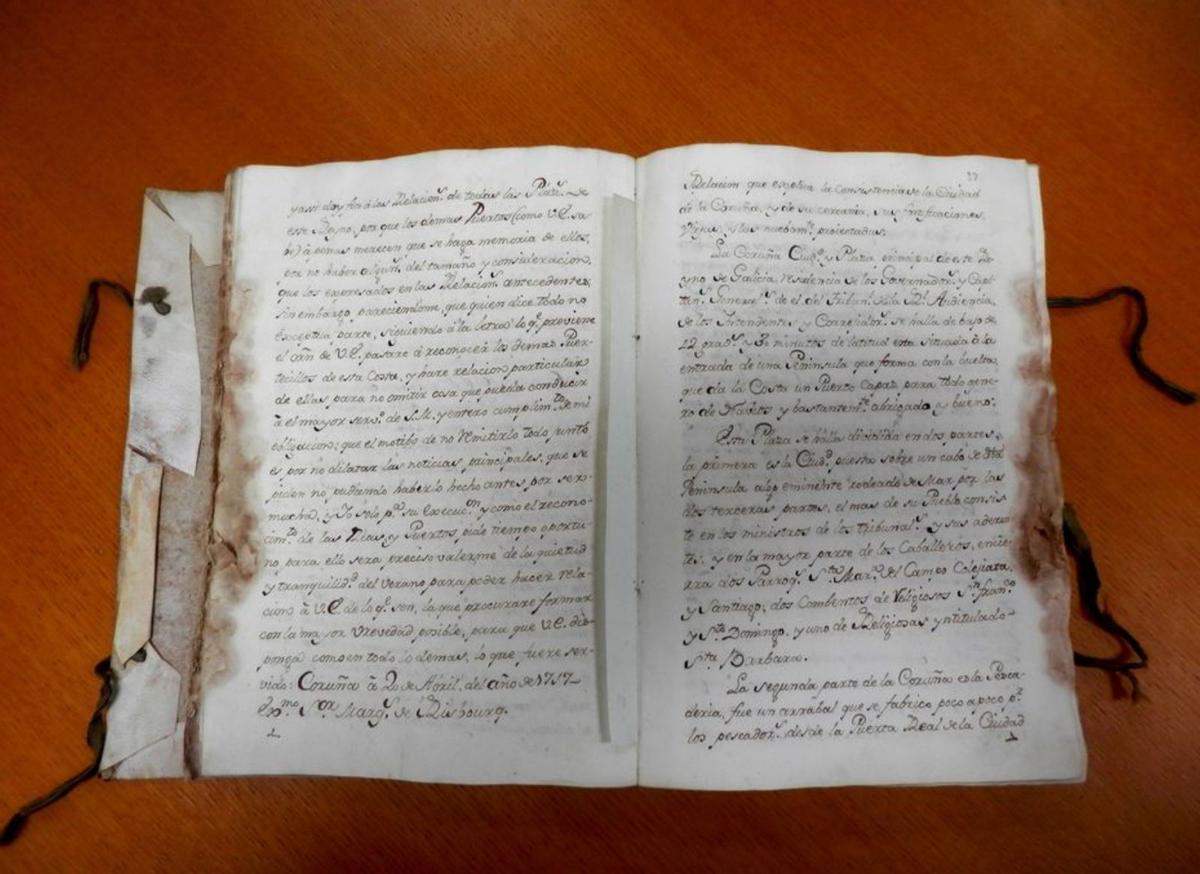 y assi doy fin à las Relacion.s de todas las Plazs. de
este Reyno, por que los demas Puertos (como V.E. sa
be) à penas merecen que se haga memoria de ellos,
por no haber algun.º del tamaño y consideracion,
que los expresados en las Relacion.s antecedentes;
sin embargo, pareciendome, que quien dice todo no
exceptua parte, siguiendo à la letra lo q.e previene
el orñ de V.E. pasare à reconocer los demas Puer-
tecillos de esta Costa, y hare relacion particular
de ellas para no omitir cosa que pueda conducir
à el mayor serv.º de S.M. y entero cumplim.to de mi
obligacion; que el motibo de no remitirlo todo junto
es por no dilatar las noticias principales, que se
piden no pudiendo haberlo hecho antes por ser
mucha, y Yo solo p.a su execuc.on y como el recono-
cim.to de las Rias, y Puertos, pide tiempo oportu-
no, para ello sera preciso valerme de la quietud
y tranquilid.d del verano para poder hacer rela-
cion à V.E. de lo q.e son, la que procurare formar
con la mayor vrevedad posible, para que V.E. dis-
ponga como en todo lo demas, lo que fuere ser-
vido: Coruña à 20 de Abril, del año de 1717
Ex.mo S.or Marq.s de Risbourg.
37
Relacion que expresa la consistencia de la Ciudad
de la Coruña, y de su cercania, sus fortificaciones,
viejas y las nuebam.te proiectadas.
La Coruña Ciud.d y Plaza principal de este Re
yno de Galicia, residencia de los Governador.s y Capi
tan.s General.s de el, del Tribun.l de la R.l Audiencia,
de los Intendentes y Corregidor.s se halla de bajo de
42 grad.s y 30 minutos de latitud esta situada à la
entrada de una Peninsula que forma con la buelta
que da la Costa un Puerto Capaz para todo gene-
ro de Navios y bastantem.te abrigado y bueno.
Esta Plaza se halla dividida en dos partes,
la primera es la Ciud.d puesta sobre un cabo de
Peninsula algo eminente rodeado de Mar por las
dos terceras partes, el mas de su Pueblo consis
te en los ministros de los tribunal.s y sus aderen
tes, y en la mayor parte de los Caballeros, encie-
rra dos Parroq.s S.ta Mar.a del Campo Colegiata,
y Santiago; dos Combentos de Religiosos S.n Fran.co
y S.to Domingo, y uno de Religiosas yntitulado
S.ta Barbara.
La segunda parte de la Coruña es la Pesca-
deria, fue un arrabal que se fabrico poco a poco p.r
los pescador.s desde la Puerta Real de la Ciudad